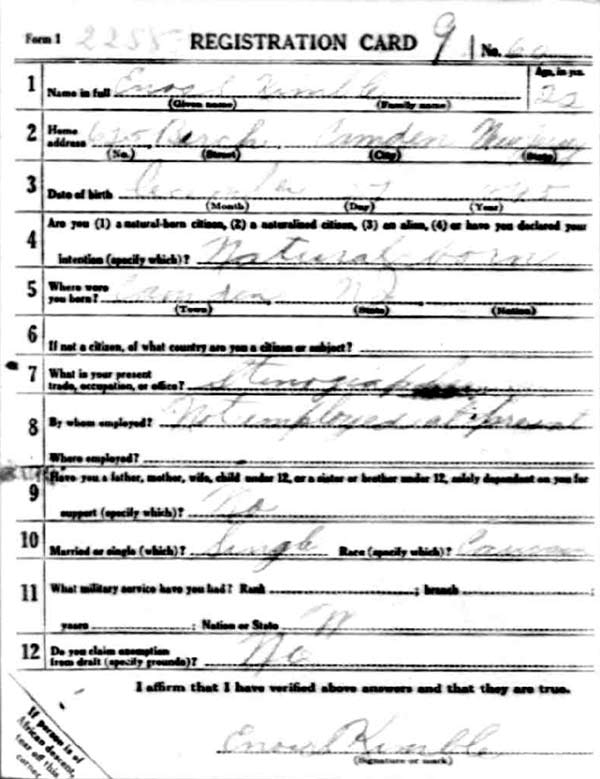 Form 1 2258 REGISTRATION CARD 9 No. 60
Age, in yrs.
1 Name in full Kimble 22
(Given name) (Family name)
2 Home address Camden New Jersey
(No.) (Street) (City) (State)
3 Date of birth December 27
(Month) (Day) (Year)
4 Are you (1) a natural-born citizen, (2) a naturalized citizen, (3) an alien, (4) or have you declared your
intention (specify which)? Natural born
5 Where were you born? Camden NJ
(Town) (State) (Nation)
6 If not a citizen, of what country are you a citizen or subject?
7 What is your present trade, occupation, or office? Stenographer
8 By whom employed? Not employed at present
Where employed?
9 Have you a father, mother, wife, child under 12, or a sister or brother under 12, solely dependent on you for
support (specify which)? No
10 Married or single (which)? Single Race (specify which)?
11 What military service have you had? Rank ; branch ;
years ; Nation or State
12 Do you claim exemption from draft (specify grounds)? No
I affirm that I have verified above answers and that they are true.
Kimble
(Signature or mark)
If person is of
African descent,
tear off this
corner.